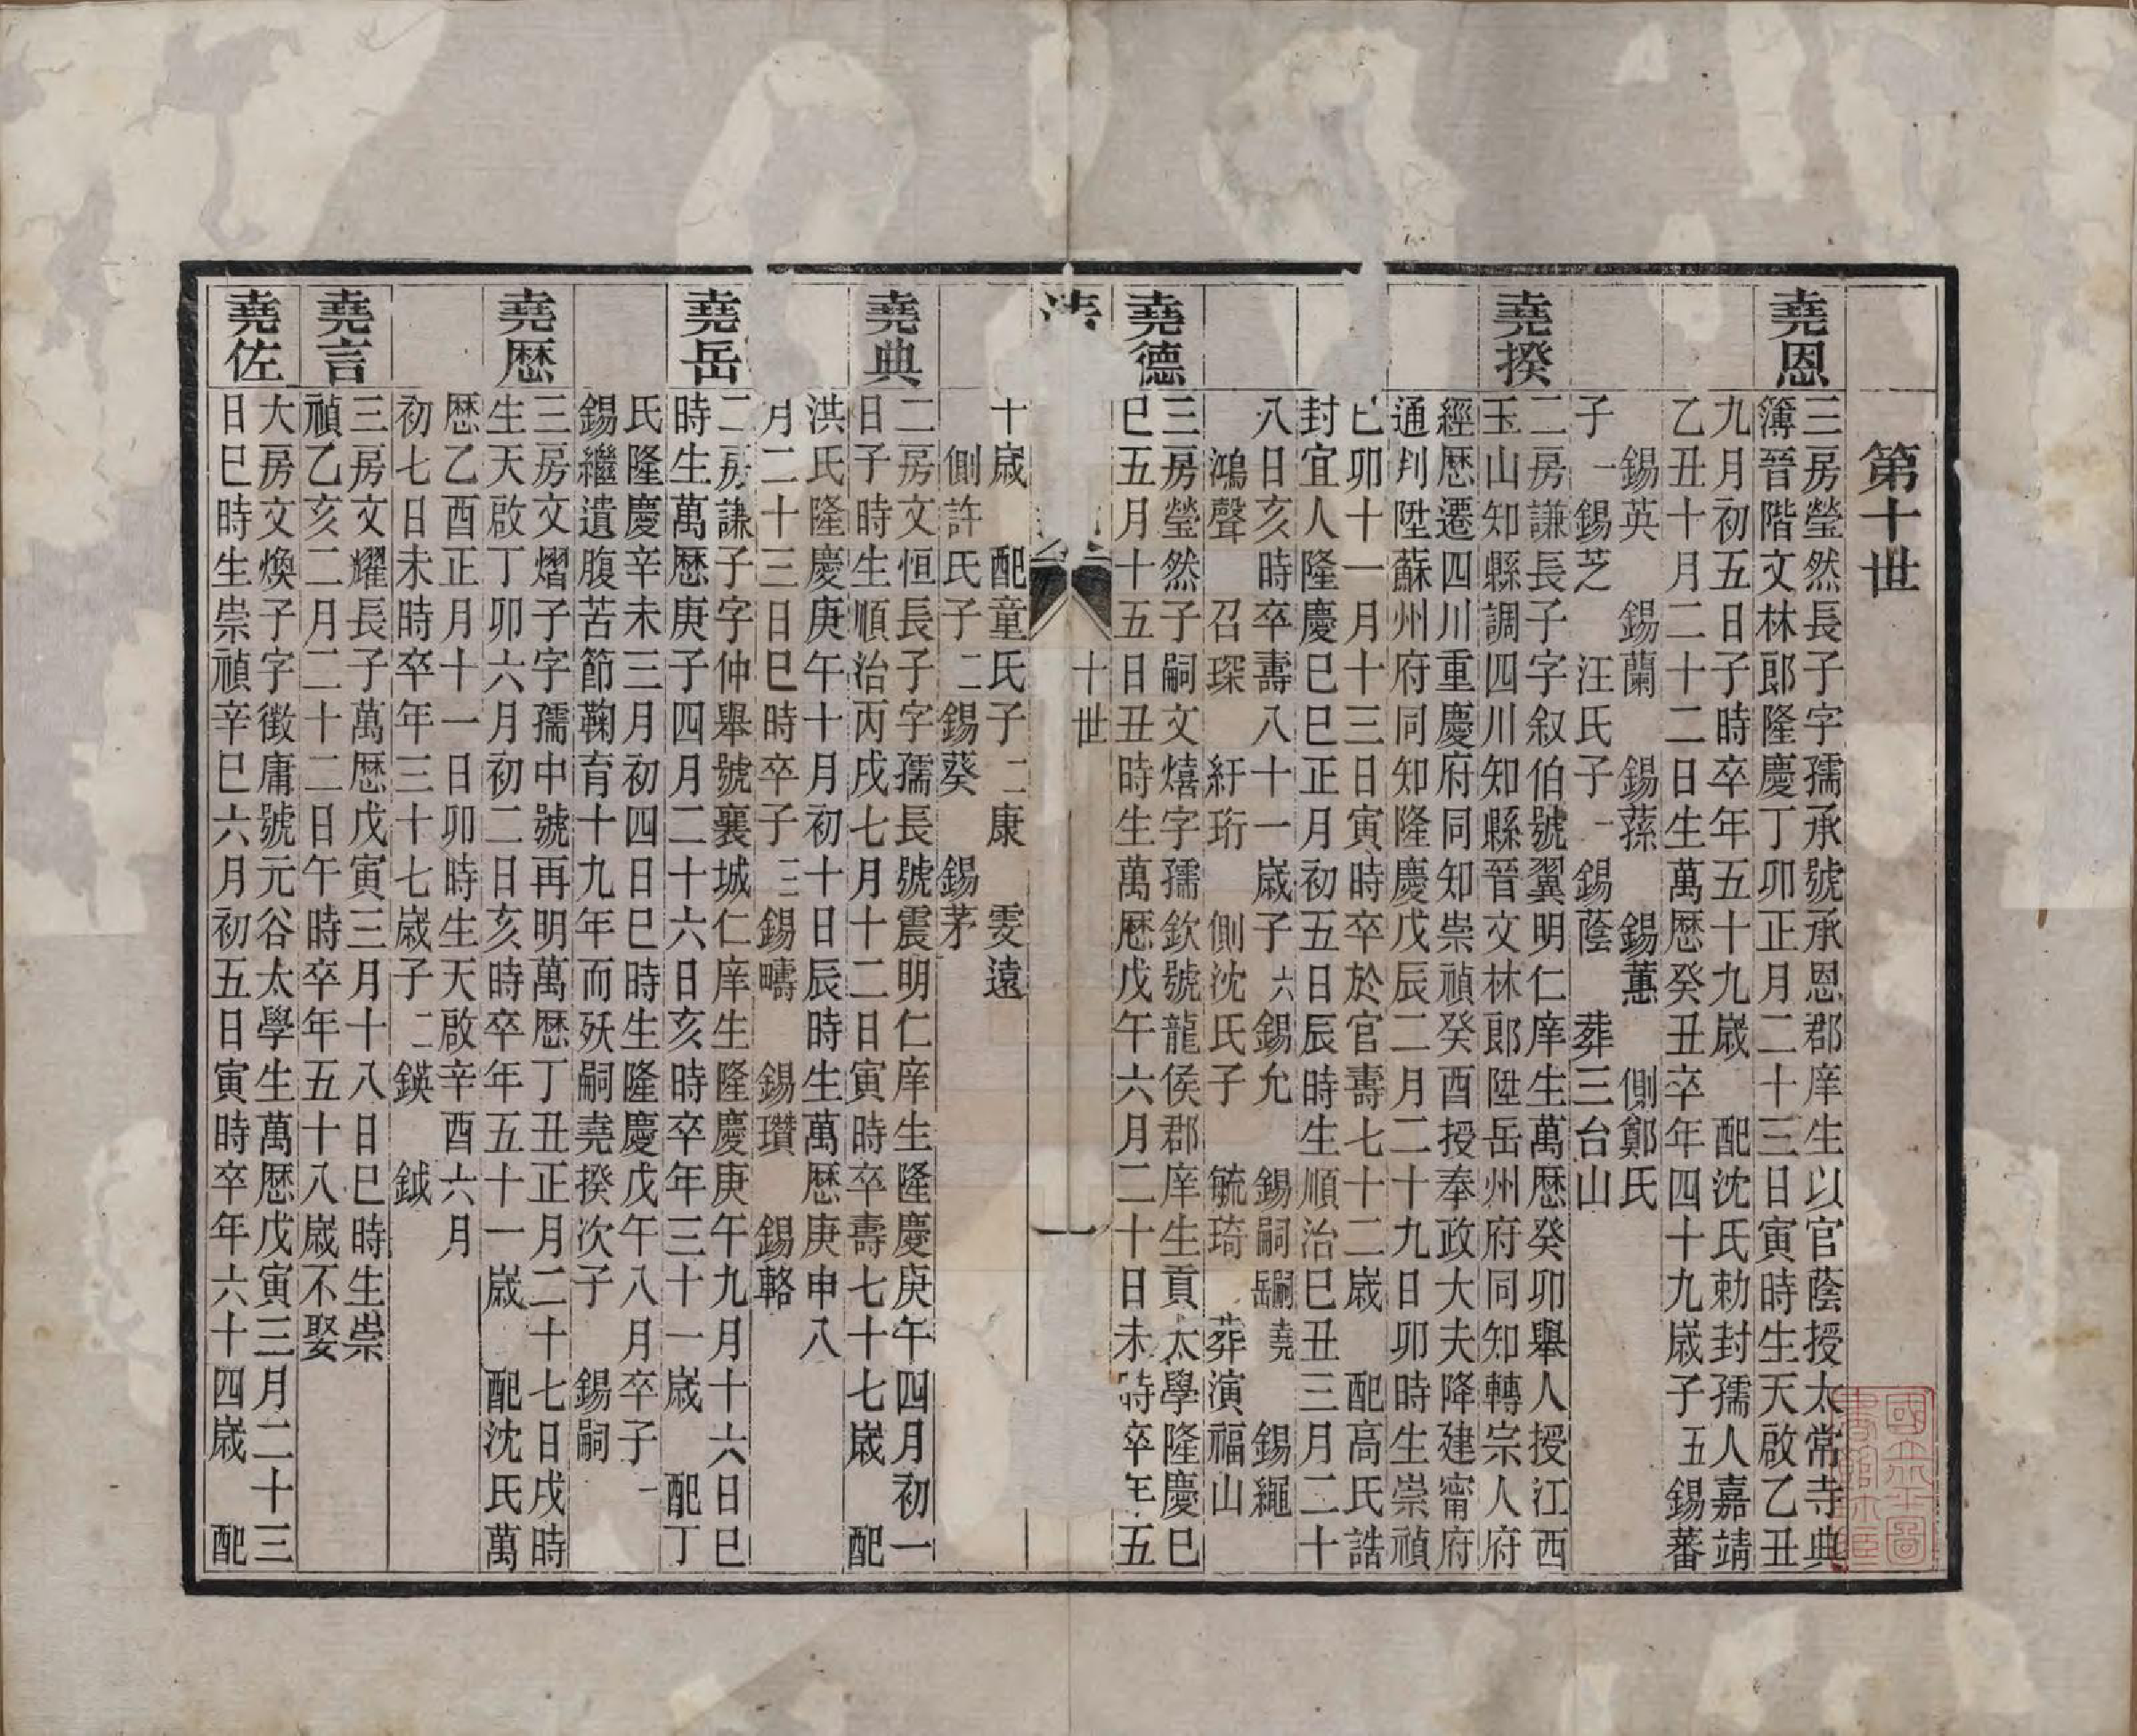 第十世
堯恩
三房瑩然長子字孺承號承恩郡庠生以官蔭授太常寺典
簿晉階文林郎隆慶丁卯正月二十三日寅時生天啟乙丑
九月初五日子時卒年五十九歲　配沈氏勅封孺人嘉靖
乙丑十月二十二日生萬厯癸丑卒年四十九歲子五錫蕃
錫英　錫蘭　錫蓀　錫蕙　側鄭氏
子一錫芝　汪氏子一錫蔭　葬三台山
堯揆
二房謙長子字叙伯號翼明仁庠生萬厯癸卯舉人授江西
玉山知縣調四川知縣晉文林郎陞岳州府同知轉宗人府
經厯遷四川重慶府同知崇禎癸酉授奉政大夫降建甯府
通判陞蘇州府同知隆慶戊辰二月二十九日卯時生崇禎
己卯十一月十三日寅時卒於官壽七十二歲　配高氏誥
封宜人隆慶己巳正月初五日辰時生順治己丑三月二十
八日亥時卒壽八十一歲子六錫允　錫嗣嗣堯岳　錫繩
鴻聲　召琛　紆珩　側沈氏子　毓琦　葬演福山
堯德
三房瑩然子嗣文熺字孺欽號龍侯郡庠生貢太學隆慶己
巳五月十五日丑時生萬厯戊午六月二十日未時卒年五
十世
一
十歲　配童氏子二康　雯遠
側許氏子二錫葵　錫茅
堯典
二房文恒長子字孺長號震明仁庠生隆慶庚午四月初一
日子時生順治丙戌七月十二日寅時卒壽七十七歲　配
洪氏隆慶庚午十月初十日辰時生萬厯庚申八
月二十三日巳時卒子三錫疇　錫瓚　錫輅
堯岳
二房謙子字仲舉號襄城仁庠生隆慶庚午九月十六日巳
時生萬厯庚子四月二十六日亥時卒年三十一歲　配丁
氏隆慶辛未三月初四日巳時生隆慶戊午八月卒子一
錫繼遺腹苦節鞠育十九年而殀嗣堯揆次子　錫嗣
堯厯
三房文熠子字孺中號再明萬厯丁丑正月二十七日戌時
生天啟丁卯六月初二日亥時卒年五十一歲　配沈氏萬
厯乙酉正月十一日卯時生天啟辛酉六月
初七日未時卒年三十七歲子二鍈　鉞
堯言
三房文耀長子萬厯戊寅三月十八日巳時生崇
禎乙亥二月二十二日午時卒年五十八歲不娶
堯佐
大房文煥子字徵庸號元谷太學生萬厯戊寅三月二十三
日巳時生崇禎辛巳六月初五日寅時卒年六十四歲　配